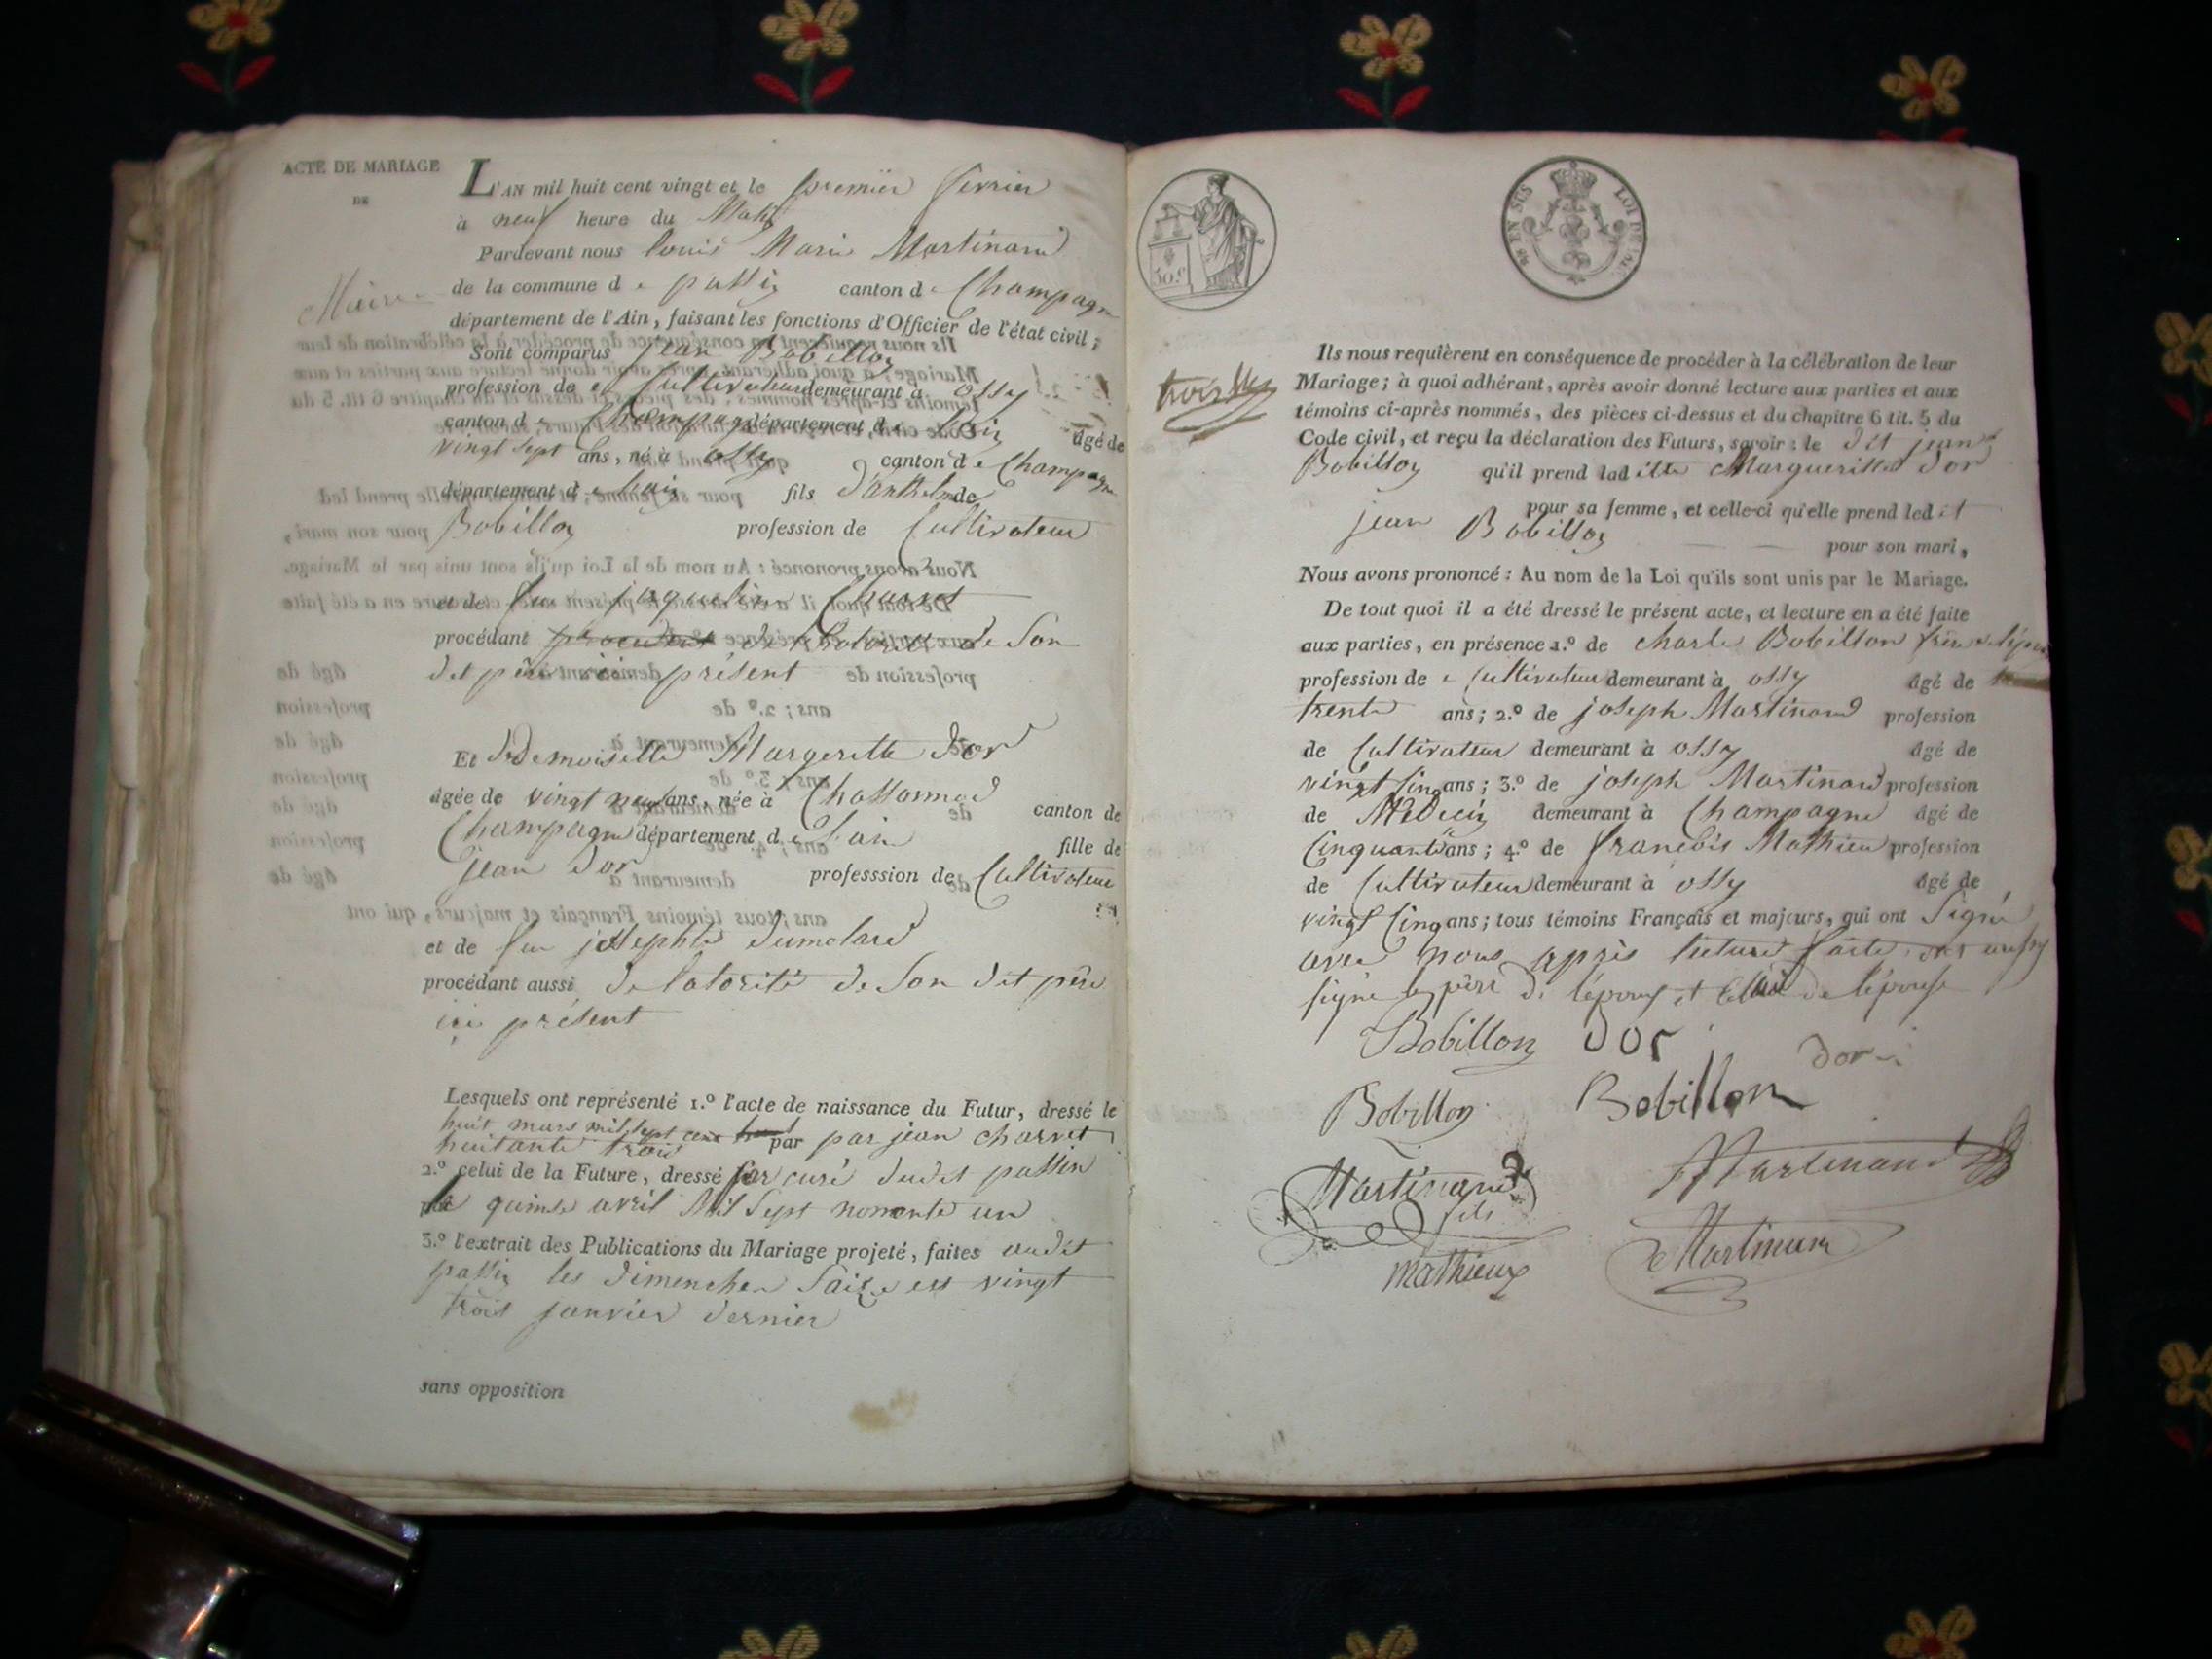 ACTE DE MARIAGE
DE
L'AN mil huit cent vingt et le premier fevrier
à neuf heure du Matin
Pardevant nous louis Marie Martinand
Maire
de la commune de passin canton de Champagne
département de l'Ain, faisant les fonctions d'Officier de l'état civil;
Sont comparus jean Bobillon
profession de Cultivateur demeurant à ossy
canton de Champag département de lain âgé de
vingt sept ans, né à ossy canton de Champagne
département de lain fils d'anthelme de
Bobillon profession de Cultivateur
et de feu jaqueline Charvet
procédant de lotorité de Son
dit père ici présent
Et demoiselle Margeritte dor
âgée de vingt neuf ans, née à canton de
Champagne département de lain fille de
jean dor professsion de Cultivateur
et de feu josephte dumolard
procédant aussi de lotorité de Son dit père
ici présent
Lesquels ont représenté 1.º l'acte de naissance du Futur, dressé le
huit mars mil sept cent
huitante trois par par jean charvet
2.º celui de la Future, dressé par curé dudit passin
le quinse avril Mil Sept nonente un
3.º l'extrait des Publications du Mariage projeté, faites audit
passin les dimenches Saize et vingt
trois janvier dernier
sans opposition
30.c
EN SUS
LOI DE
Ils nous requièrent en conséquence de procéder à la célébration de leur
Mariage; à quoi adhérant, après avoir donné lecture aux parties et aux
témoins ci-après nommés, des pièces ci-dessus et du chapitre 6 tit. 5 du
Code civil, et reçu la déclaration des Futurs, savoir: le dit jean
Bobillon qu'il prend ladite Margueritte dor
pour sa femme, et celle-ci qu'elle prend ledit
jean Bobillon pour son mari,
Nous avons prononcé: Au nom de la Loi qu'ils sont unis par le Mariage.
De tout quoi il a été dressé le présent acte, et lecture en a été faite
aux parties, en présence 1.º de charle Bobillon frère de lépoux
profession de Cultivateur demeurant à ossy âgé de
trente ans; 2.º de joseph Martinand profession
de Cultivateur demeurant à ossy âgé de
vingt cinq ans; 3.º de joseph Martinand profession
de Médecin demeurant à Champagne âgé de
Cinquante ans; 4.º de francois Mathieu profession
de Cultivateur demeurant à ossy âgé de
vingt cinq ans; tous témoins Français et majeurs, qui ont Signé
avec nous après lecture faite ont aussy
signé le père de lépoux et celui de lépouse
Bobillon dor dor
Bobillon Bobillon
Martinand fils Martinand
mathieux Martinand